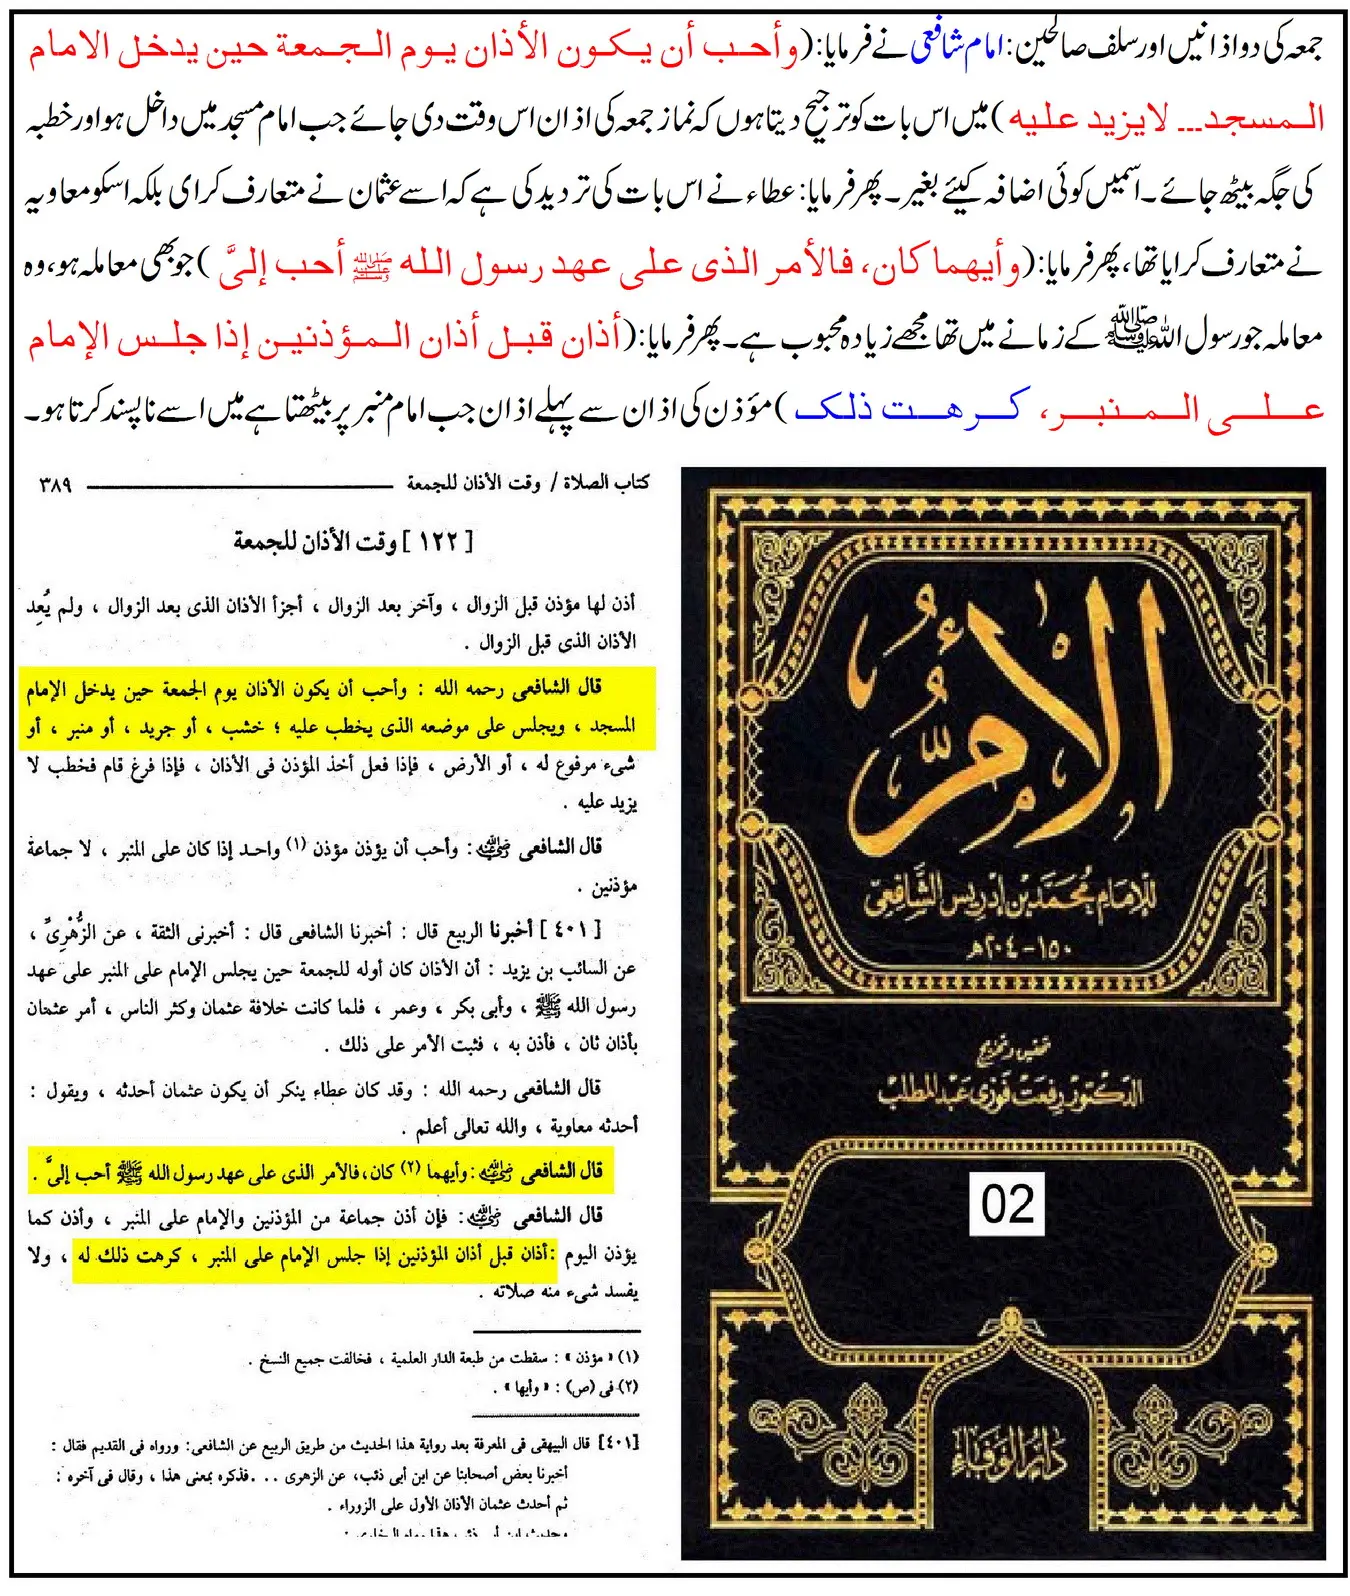 جمعہ کی دو اذانیں اور سلف صالحین: امام شافعی نے فرمایا: (وأحب أن يكون الأذان يوم الجمعة حين يدخل الامام
المسجد... لايزيد عليه) میں اس بات کو ترجیح دیتا ہوں کہ نماز جمعہ کی اذان اس وقت دی جائے جب امام مسجد میں داخل ہو اور خطبہ
کی جگہ بیٹھ جائے۔ اسمیں کوئی اضافہ کیئے بغیر۔ پھر فرمایا: عطاء نے اس بات کی تردید کی ہے کہ اسے عثمان نے متعارف کرای بلکہ اسکو معاویہ
نے متعارف کرایا تھا، پھر فرمایا: (وأيهما كان، فالأمر الذى على عهد رسول الله ﷺ أحب إلىَّ) جو بھی معاملہ ہو، وہ
معاملہ جو رسول اللہ ﷺ کے زمانے میں تھا مجھے زیادہ محبوب ہے۔ پھر فرمایا: (أذان قبل أذان المؤذنين إذا جلس الإمام
على المنبر، كرهت ذلك) مؤذن کی اذان سے پہلے اذان جب امام منبر پر بیٹھتا ہے میں اسے ناپسند کرتا ہو۔
كتاب الصلاة / وقت الأذان للجمعة ٣٨٩
[ ١٢٢ ] وقت الأذان للجمعة
أذن لها مؤذن قبل الزوال ، وآخر بعد الزوال ، أجزأ الأذان الذى بعد الزوال ، ولم يُعِد
الأذان الذى قبل الزوال .
قال الشافعى رحمه الله : وأحب أن يكون الأذان يوم الجمعة حين يدخل الإمام
المسجد ، ويجلس على موضعه الذى يخطب عليه ؛ خشب ، أو جريد ، أو منبر ، أو
شىء مرفوع له ، أو الأرض ، فإذا فعل أخذ المؤذن فى الأذان ، فإذا فرغ قام فخطب لا
يزيد عليه .
قال الشافعى رضي الله عنه : وأحب أن يؤذن مؤذن (١) واحد إذا كان على المنبر ، لا جماعة
مؤذنين .
[ ٤٠١ ] أخبرنا الربيع قال : أخبرنا الشافعى قال : أخبرنى الثقة ، عن الزُّهْرِىِّ ،
عن السائب بن يزيد : أن الأذان كان أوله للجمعة حين يجلس الإمام على المنبر على عهد
رسول الله ﷺ ، وأبى بكر ، وعمر ، فلما كانت خلافة عثمان وكثر الناس ، أمر عثمان
بأذان ثان ، فأذن به ، فثبت الأمر على ذلك .
قال الشافعى رحمه الله : وقد كان عطاء ينكر أن يكون عثمان أحدثه ، ويقول :
أحدثه معاوية ، والله تعالى أعلم .
قال الشافعى رضي الله عنه : وأيهما (٢) كان، فالأمر الذى على عهد رسول الله ﷺ أحب إلىَّ .
قال الشافعى رضي الله عنه : فإن أذن جماعة من المؤذنين والإمام على المنبر ، وأذن كما
يؤذن اليوم : أذان قبل أذان المؤذنين إذا جلس الإمام على المنبر ، كرهت ذلك له ، ولا
يفسد شىء منه صلاته .
(١) « مؤذن » : سقطت من طبعة الدار العلمية ، فخالفت جميع النسخ .
(٢) فى (ص) : « وأيها » .
[٤٠١] قال البيهقى فى المعرفة بعد رواية هذا الحديث من طريق الربيع عن الشافعى: ورواه فى القديم فقال :
أخبرنا بعض أصحابنا عن ابن أبى ذئب، عن الزهرى . . . فذكره بمعنى هذا ، وقال فى آخره :
ثم أحدث عثمان الأذان الأول على الزوراء .
الأمّ
للإمام محمد بن إدريس الشافعي
١٥٠ - ٢٠٤هـ
تحقيق وتخريج
الدكتور رفعت فوزي عبد المطلب
02
دار الوفاء